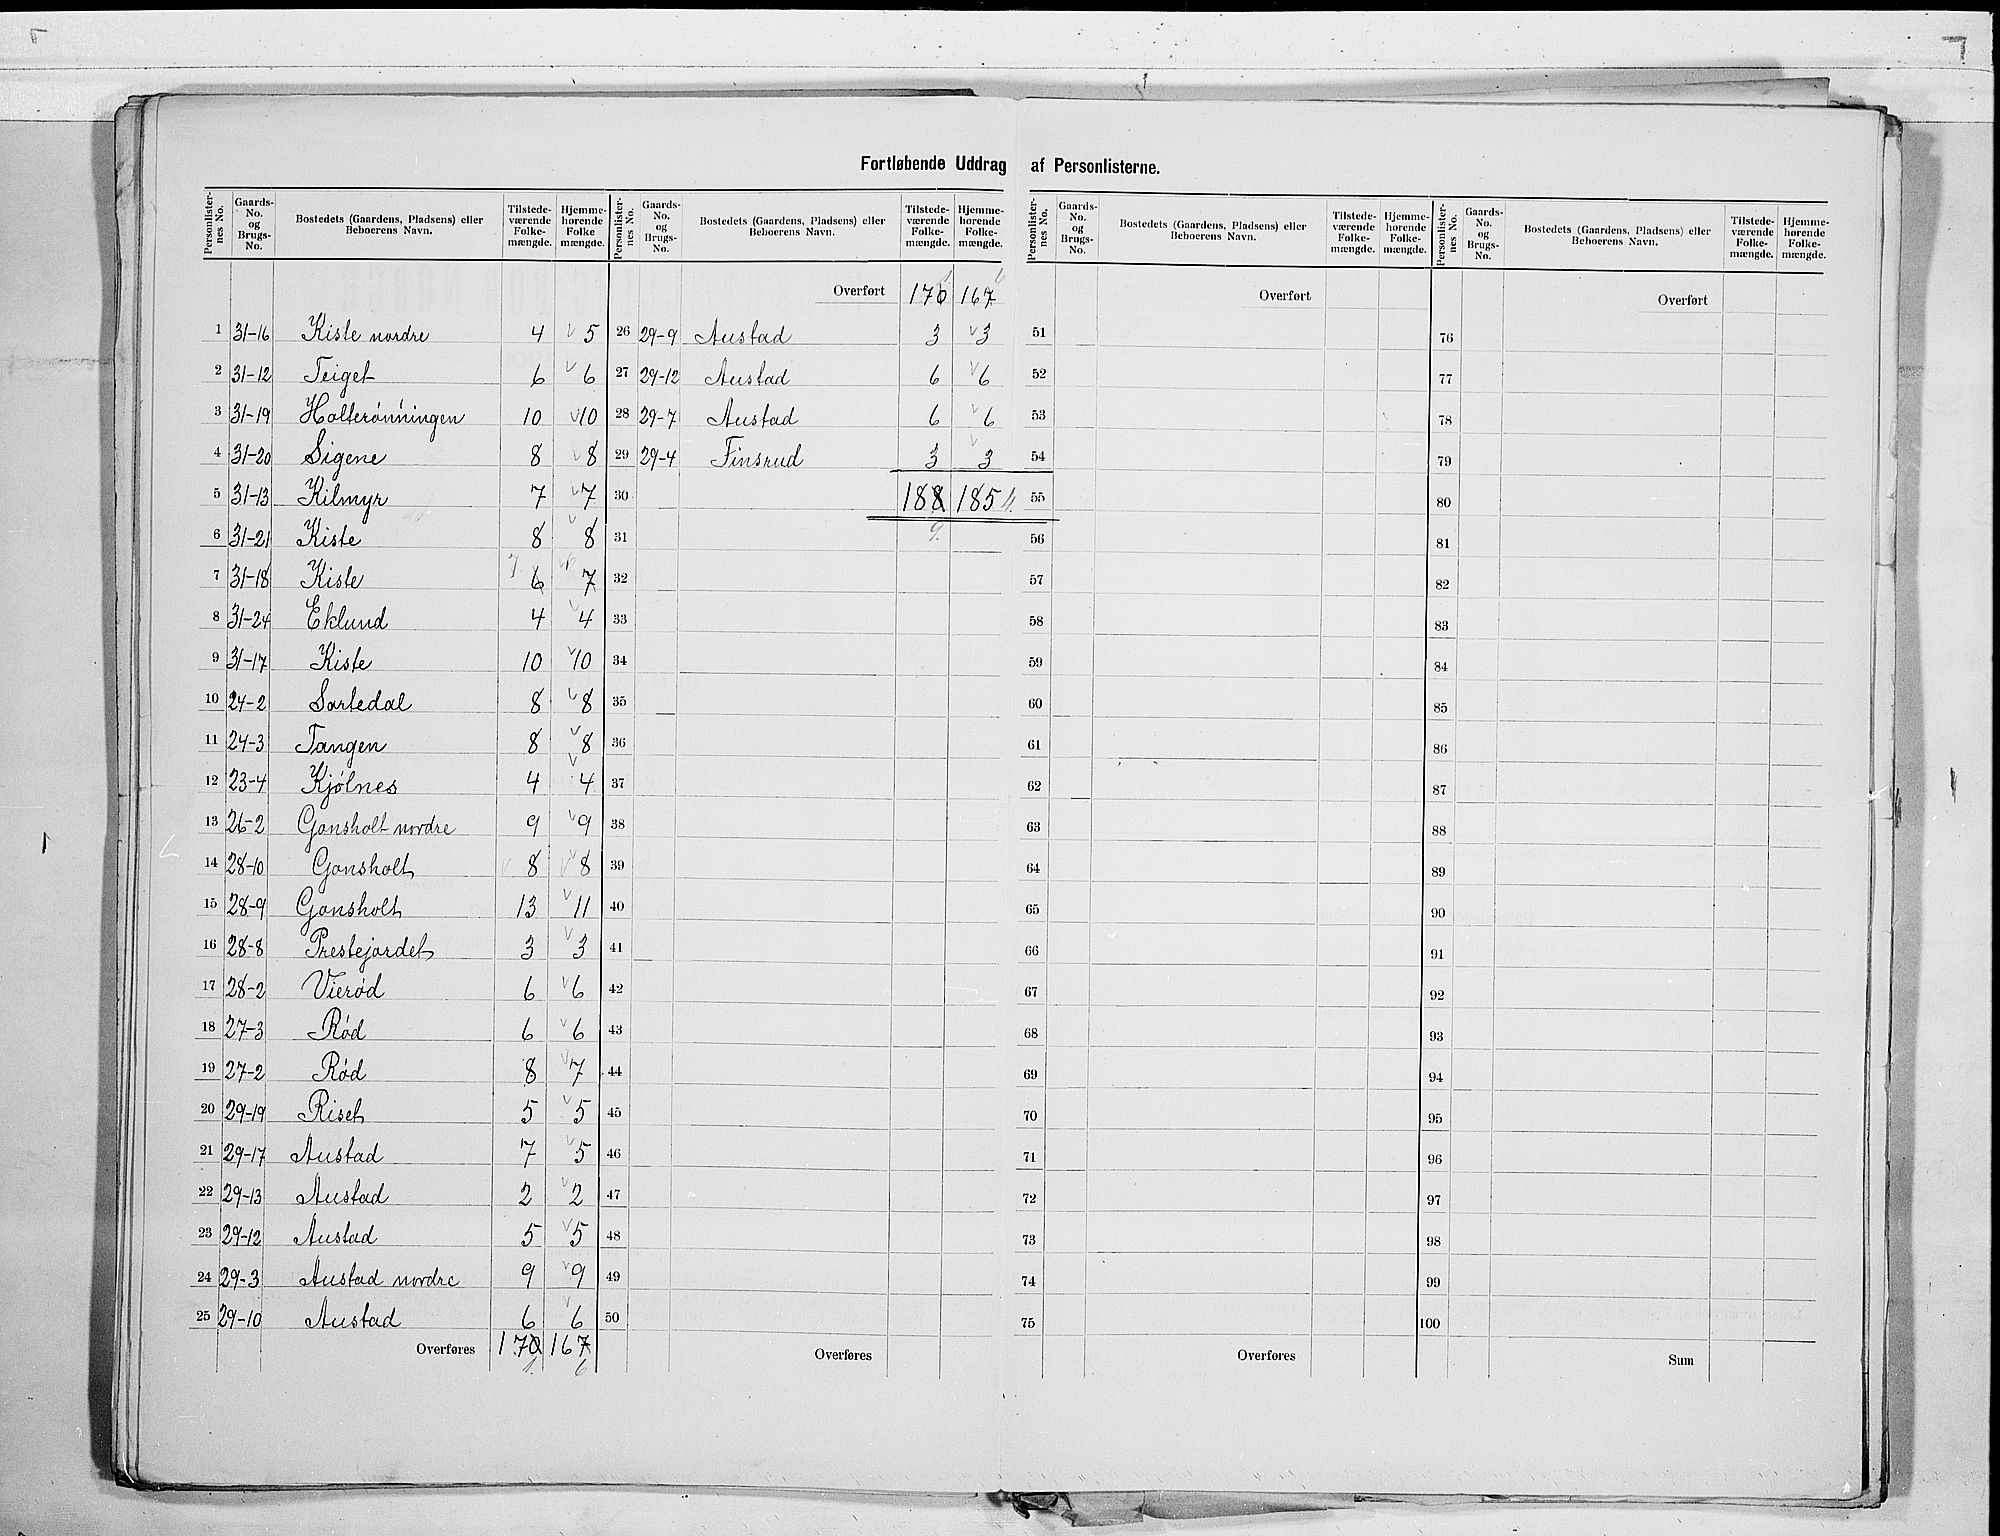 Fortløbende Uddrag af Personlisterne.
Personlister-nes No. Gaards-No. og Brugs-No. Bostedets (Gaardens, Pladsens) eller Beboerens Navn. Tilstede-værende Folke-mængde. Hjemme-hørende Folke mængde.
1 31-16 Kiste nordre 4 5
2 31-12 Teiget 6 6
3 31-19 Holterønningen 10 10
4 31-20 Sigene 8 8
5 31-13 Kilmyr 7 7
6 31-21 Kiste 8 8
7 31-18 Kiste 7. 6 6 7
8 31-24 Eklund 4 4
9 31-17 Kiste 10 10
10 24-2 Sortedal 8 8
11 24-3 Tangen 8 8
12 23-4 Kjølnes 4 4
13 26-2 Gonsholt nordre 9 9
14 28-10 Gonsholt 8 8
15 28-9 Gonsholt 13 11
16 28-8 Prestejordet 3 3
17 28-2 Vierød 6 6
18 27-3 Rød 6 6
19 27-2 Rød 8 7
20 29-19 Riset 5 5
21 29-17 Austad 7 5
22 29-13 Austad 2 2
23 29-12 Austad 5 5
24 29-3 Austad nordre 9 9
25 29-10 Austad 6 6
Overføres 170 167
1. 6
Personlister-nes No. Gaards-No. og Brugs-No. Bostedets (Gaardens, Pladsens) eller Beboerens Navn. Tilstede-værende Folke-mængde. Hjemme-hørende Folke-mængde.
1 6
Overført 170 167
26 29-9 Austad 3 3
27 29-12 Austad 6 6
28 29-7 Austad 6 6
29 29-4 Finsrud 3 3
30 188 185 4.
31 9.
32
33
34
35
36
37
38
39
40
41
42
43
44
45
46
47
48
49
50
Overføres
Personlister-nes No. Gaards-No. og Brugs-No. Bostedets (Gaardens, Pladsens) eller Beboerens Navn. Tilstede-værende Folke-mængde. Hjemme-hørende Folke-mængde.
Overført
51
52
53
54
55
56
57
58
59
60
61
62
63
64
65
66
67
68
69
70
71
72
73
74
75
Overføres
Personlister-nes No. Gaards-No. og Brugs-No. Bostedets (Gaardens, Pladsens) eller Beboerens Navn. Tilstede-værende Folke-mængde. Hjemme-hørende Folke-mængde.
Overført
76
77
78
79
80
81
82
83
84
85
86
87
88
89
90
91
92
93
94
95
96
97
98
99
100
Sum